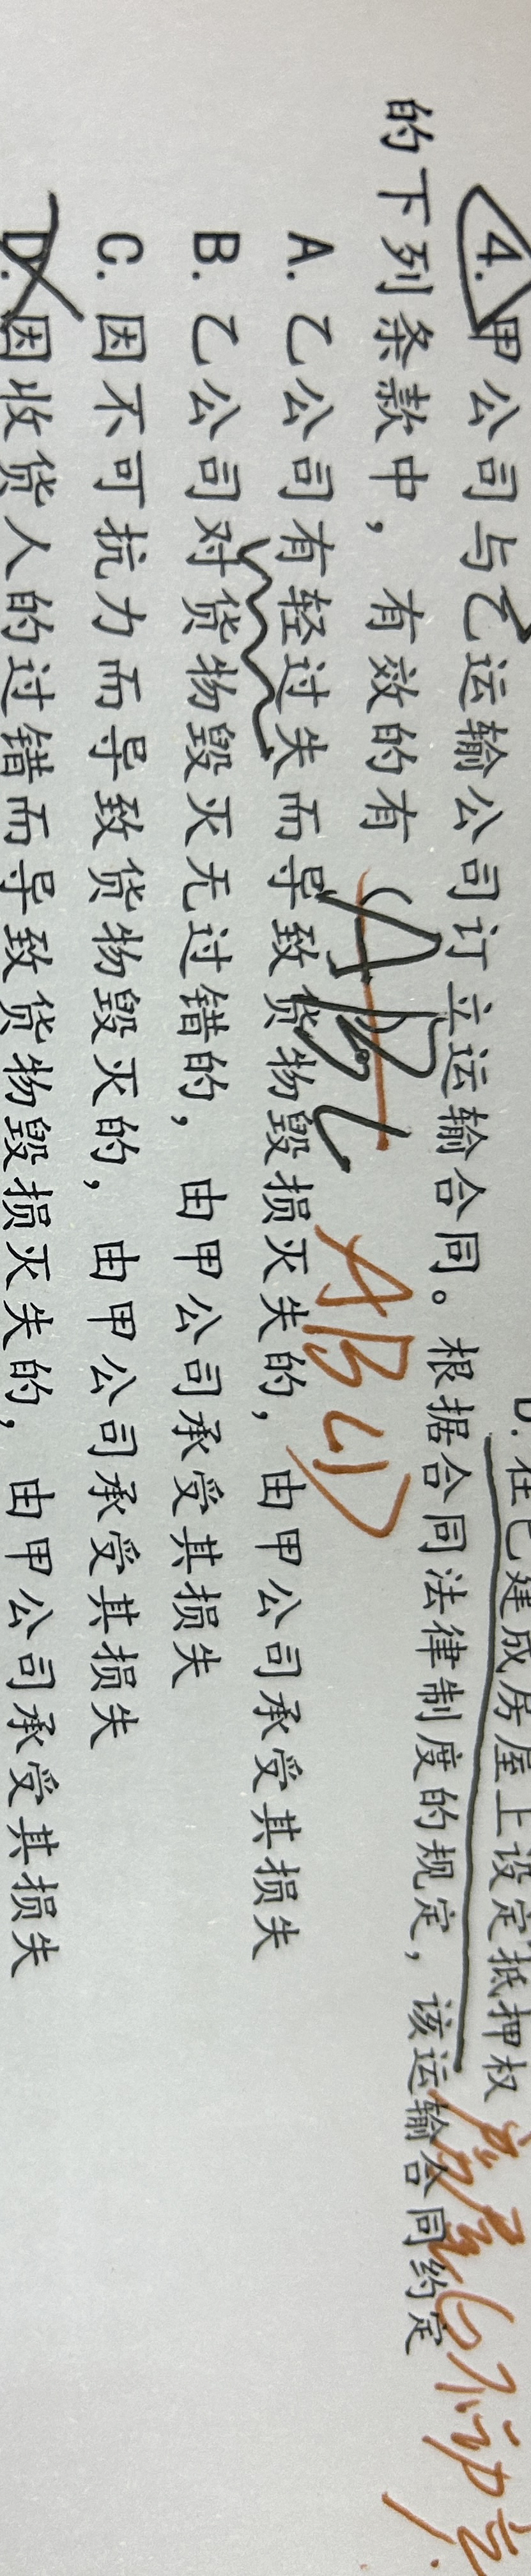 D. 在已建成房屋上设定抵押权
4. 甲公司与乙运输公司订立运输合同。根据合同法律制度的规定，该运输合同约定
的下列条款中，有效的有（ABC ABCD
A. 乙公司有轻过失而导致货物毁损灭失的，由甲公司承受其损失
B. 乙公司对货物毁灭无过错的，由甲公司承受其损失
C. 因不可抗力而导致货物毁灭的，由甲公司承受其损失
D. 因收货人的过错而导致货物毁损灭失的，由甲公司承受其损失